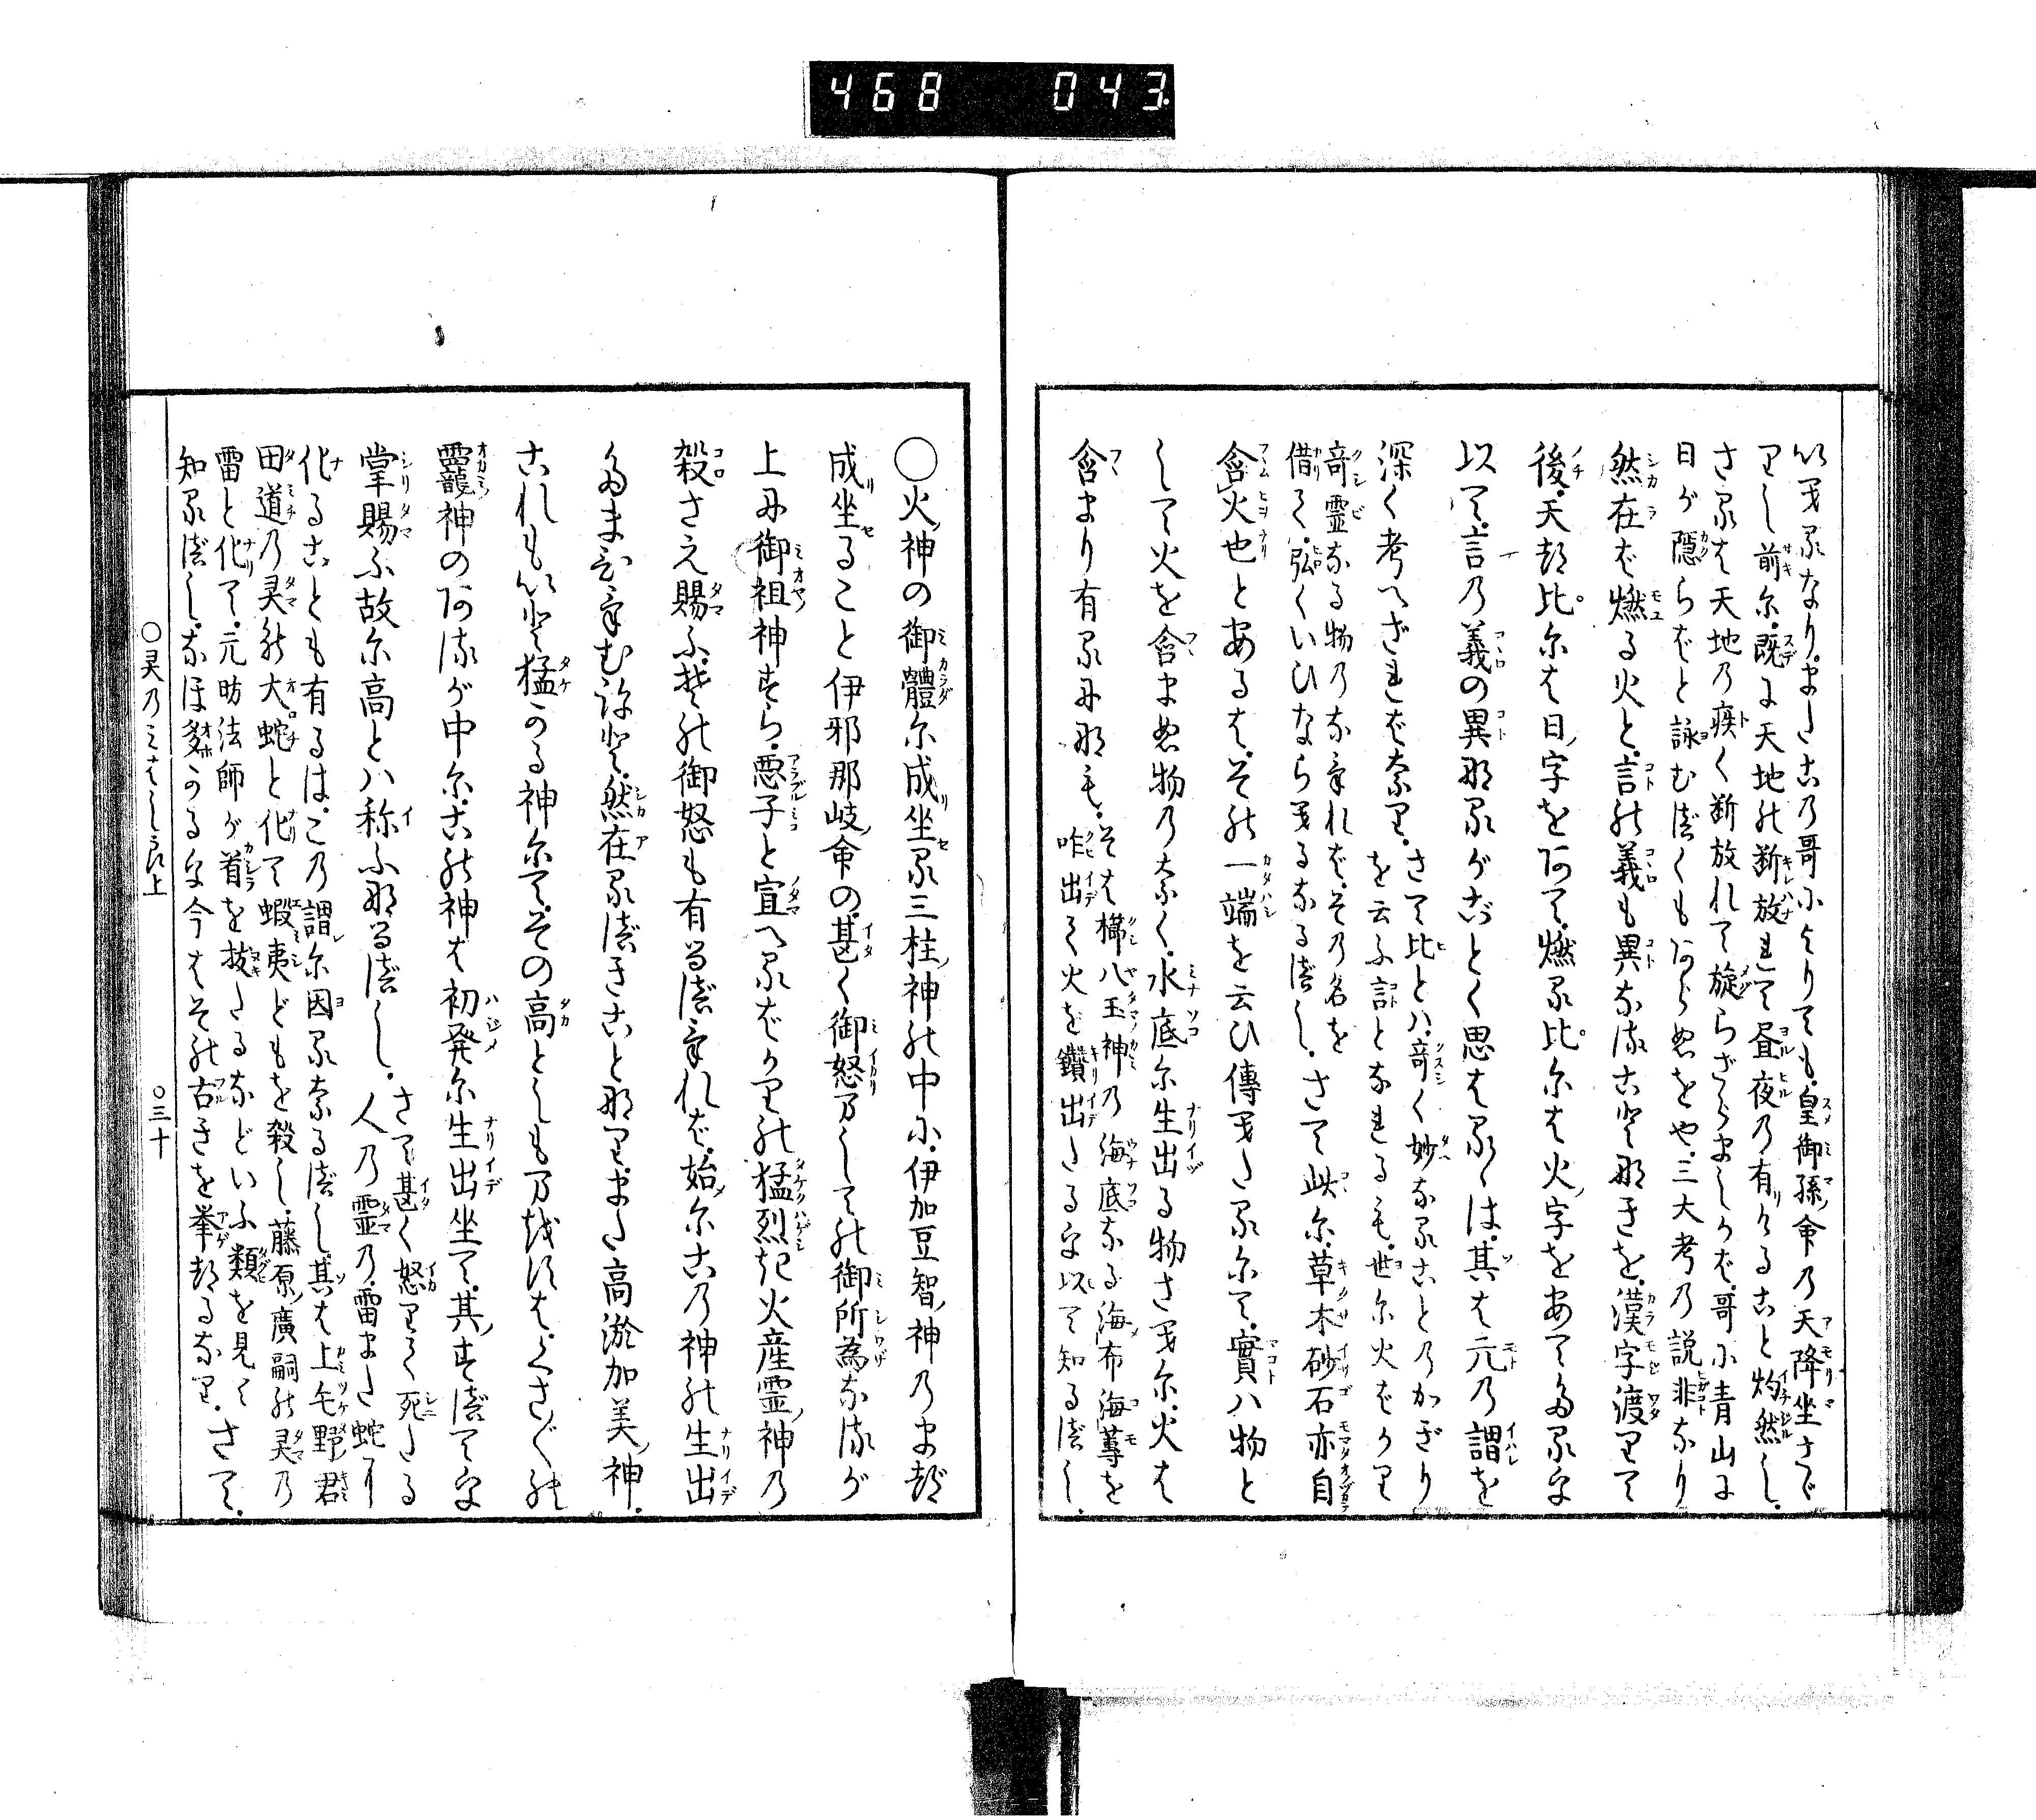 468 043
いへるなり。またこの哥によりても。皇御孫命の天降坐さで
りし前に。既に天地の断放れて昼夜の有けること灼然し。
さるは天地の疾く断放れて旋らざらましかば。哥に青山に
日が隠らばと詠むべくもあらぬをや。三大考の説非なり
然在ば燃る火と。言の義も異なるこそなきを。漢字渡りて
後。天つ比には日ノ字をあて。燃る比には火ノ字をあてたるを
以て。言の義の異なるがごとく思はるゝは。其は元の謂を
深く考へざればなり。さて比とハ。奇く妙なることのかぎり
を云ふ言となれるも。世に火ばかり
奇霊なる物のなければ。その名を
借て。弘くいひならへるなるべし。さて此に草木砂石亦自
含火也とあるは。その一端を云ひ傳へたるにて。實ハ物と
して火を含まぬ物のなく。水底に生出る物さへに。火は
含まり有るになも。そは櫛八玉神の海底なる海布海蓴を
咋出て火を鑽出たるを以て知るべし。
〇火ノ神の御體に成坐る三柱ノ神の中に。伊加豆智ノ神のまづ
成坐ること伊邪那岐ノ命の。甚く御怒ましての御所為なるが
上に御祖神すら。悪子と宣へるばかりの猛烈き火産霊ノ神の
殺さえ賜ふ。其の御怒も有るべければ。始にこの神の生出
たまひけむ訳ぞ。然在るべきことなり。また高淤加美ノ神。
これもいと猛かる神にて。その高としもまをすは。くさぐの
靇神のあるが中に。この神は初発に生出坐て。其ノすべてを
掌賜ふ故に高とハ称ふなるべし。さて甚く怒りて死たる
人の霊の。雷また蛇に
化ることも有るは。この謂に因るなるべし其は上毛野ノ君
田道の灵の大蛇と化て蝦夷どもを殺し。藤原ノ廣嗣の灵の
雷と化て。元昉法師が首を抜たるなどいふ類を見て
知るべし。なほ多かるを今はその古きを挙つるなり。さて。
〇灵のみはしら上 〇三十